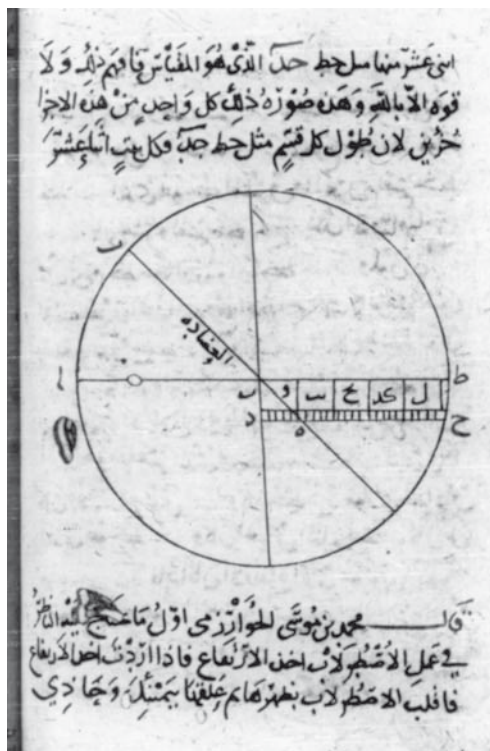 اثنى عشر منها مثل خط حد الذى هو المقياس فافهم ذلك ولا
قوة الا بالله وهذه صورة ذلك كل واحد من هذه الاجزا
لان طول كل قسم مثل خط وكل بيت اثنا عشر
ب
العضادة
ا
ط
ب
و
س
ح
كد
ل
د
ه
ح
قال محمد بن موسى الخوارزمى اول ما يحتاج اليه الناظر
فى عمل الاصطرلاب اخذ الارتفاع فاذا اردت اخذ الارتفاع
فاقلب الاصطرلاب بظهرها ثم علقها بيمينك وحاذي